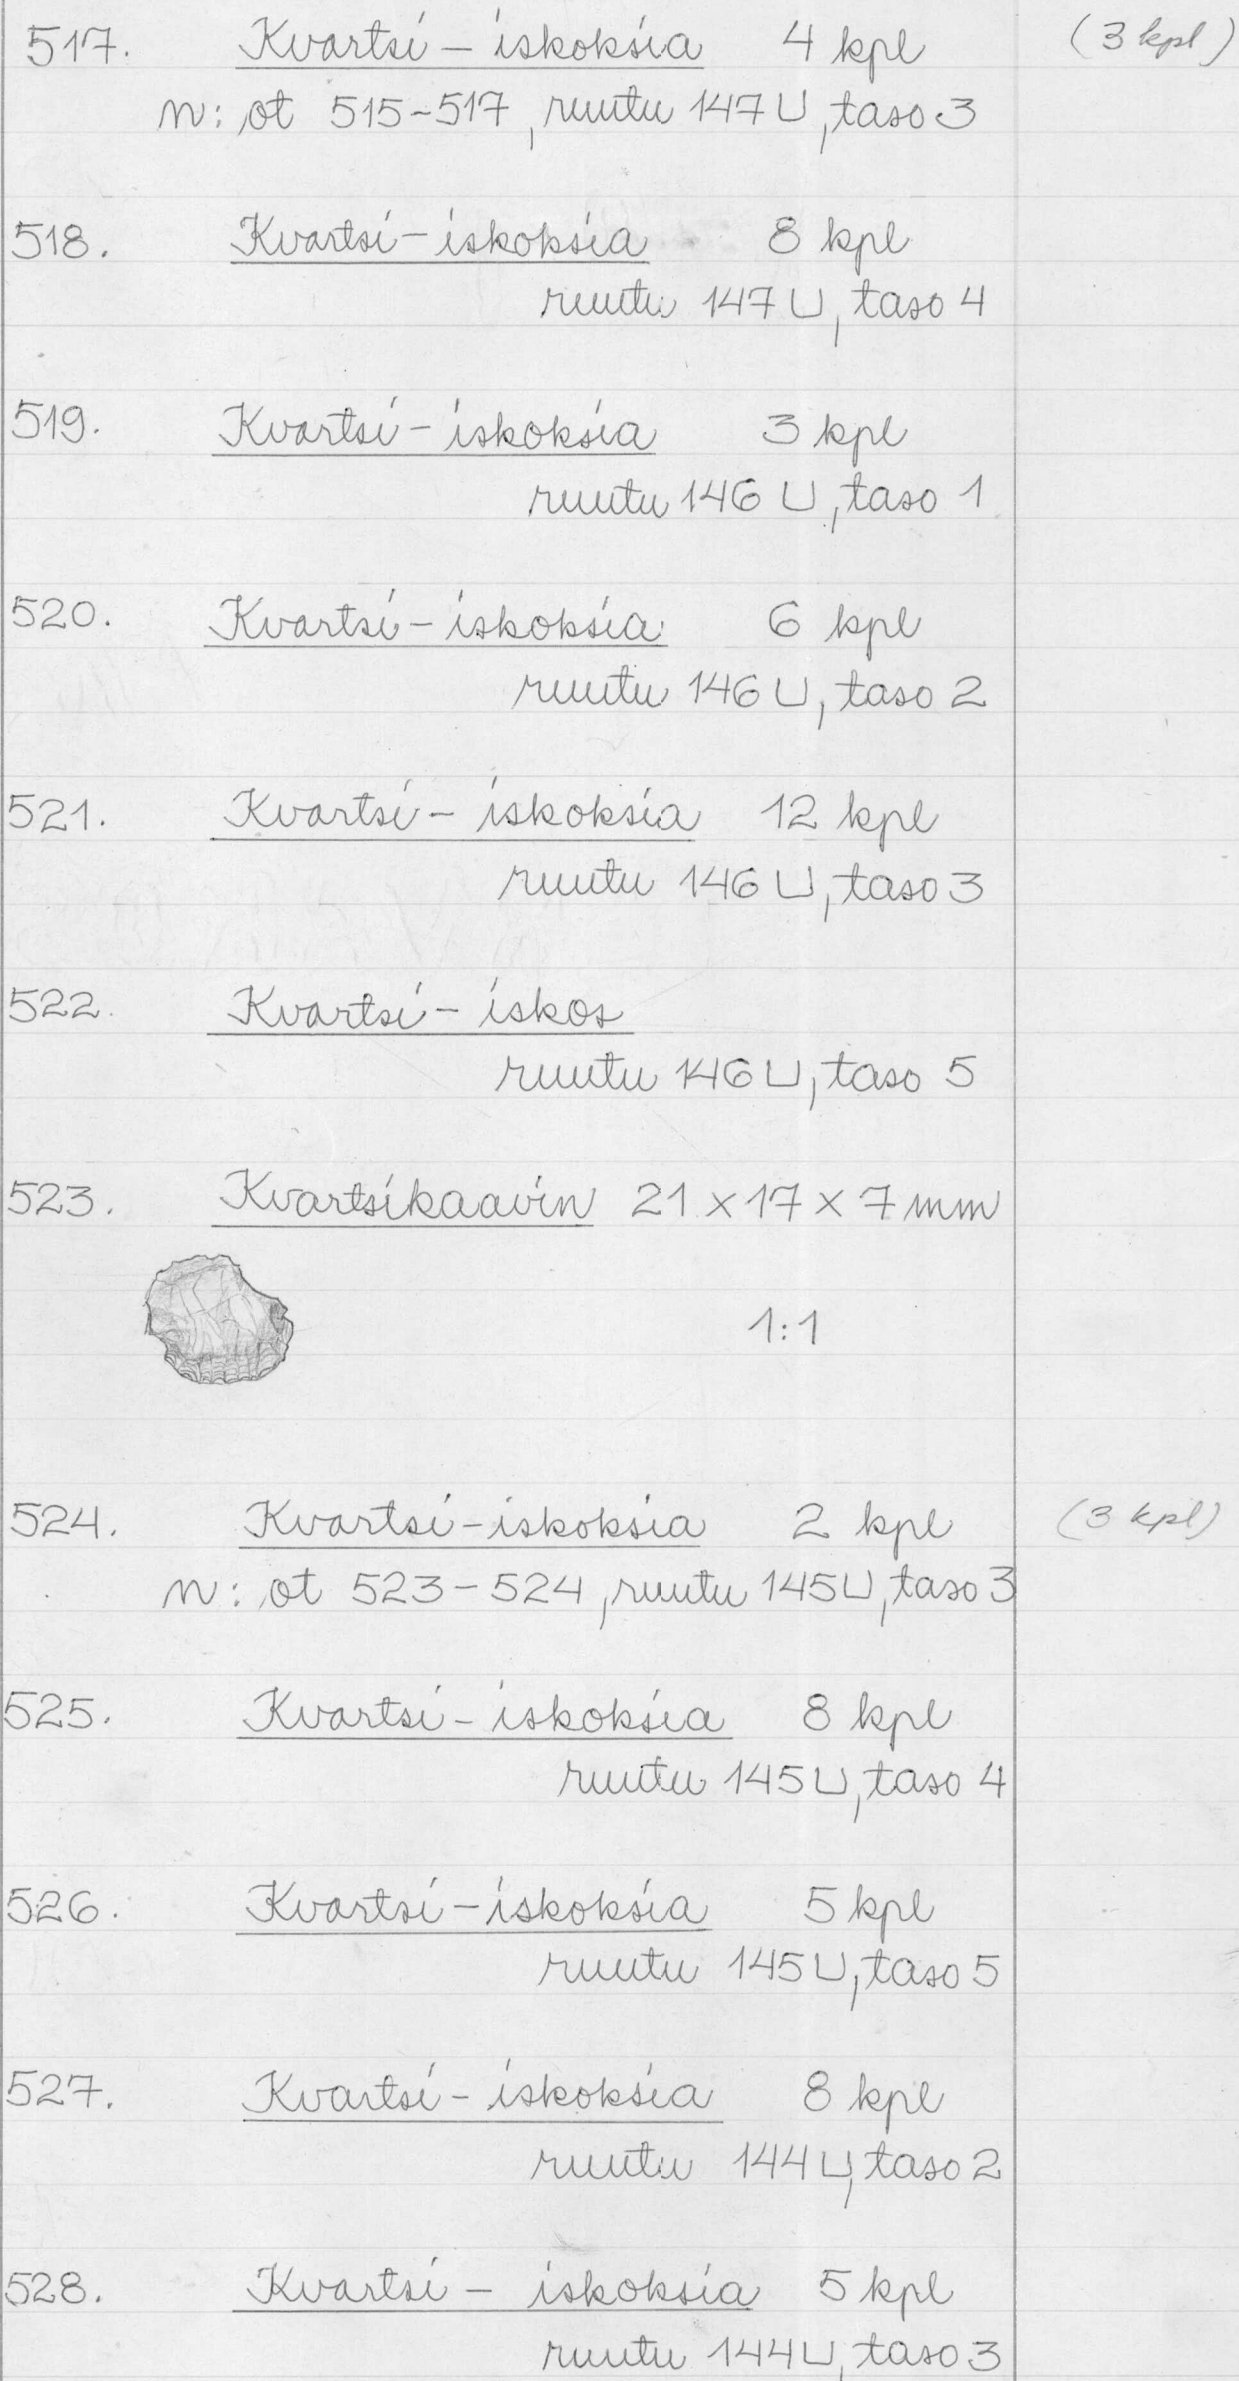 517. Kvartsi - iskoksia 4 kpl (3 kpl)
n: ot 515-517, ruutu 147 U, taso 3
518. Kvartsi - iskoksia 8 kpl
ruutu 147 U, taso 4
519. Kvartsi - iskoksia 3 kpl
ruutu 146 U, taso 1
520. Kvartsi - iskoksia 6 kpl
ruutu 146 U, taso 2
521. Kvartsi - iskoksia 12 kpl
ruutu 146 U, taso 3
522. Kvartsi - iskos
ruutu 146 U, taso 5
523. Kvartsikaavin 21 x 17 x 7 mm
1:1
524. Kvartsi - iskoksia 2 kpl (3 kpl)
n: ot 523-524, ruutu 145 U, taso 3
525. Kvartsi - iskoksia 8 kpl
ruutu 145 U, taso 4
526. Kvartsi - iskoksia 5 kpl
ruutu 145 U, taso 5
527. Kvartsi - iskoksia 8 kpl
ruutu 144 U, taso 2
528. Kvartsi - iskoksia 5 kpl
ruutu 144 U, taso 3